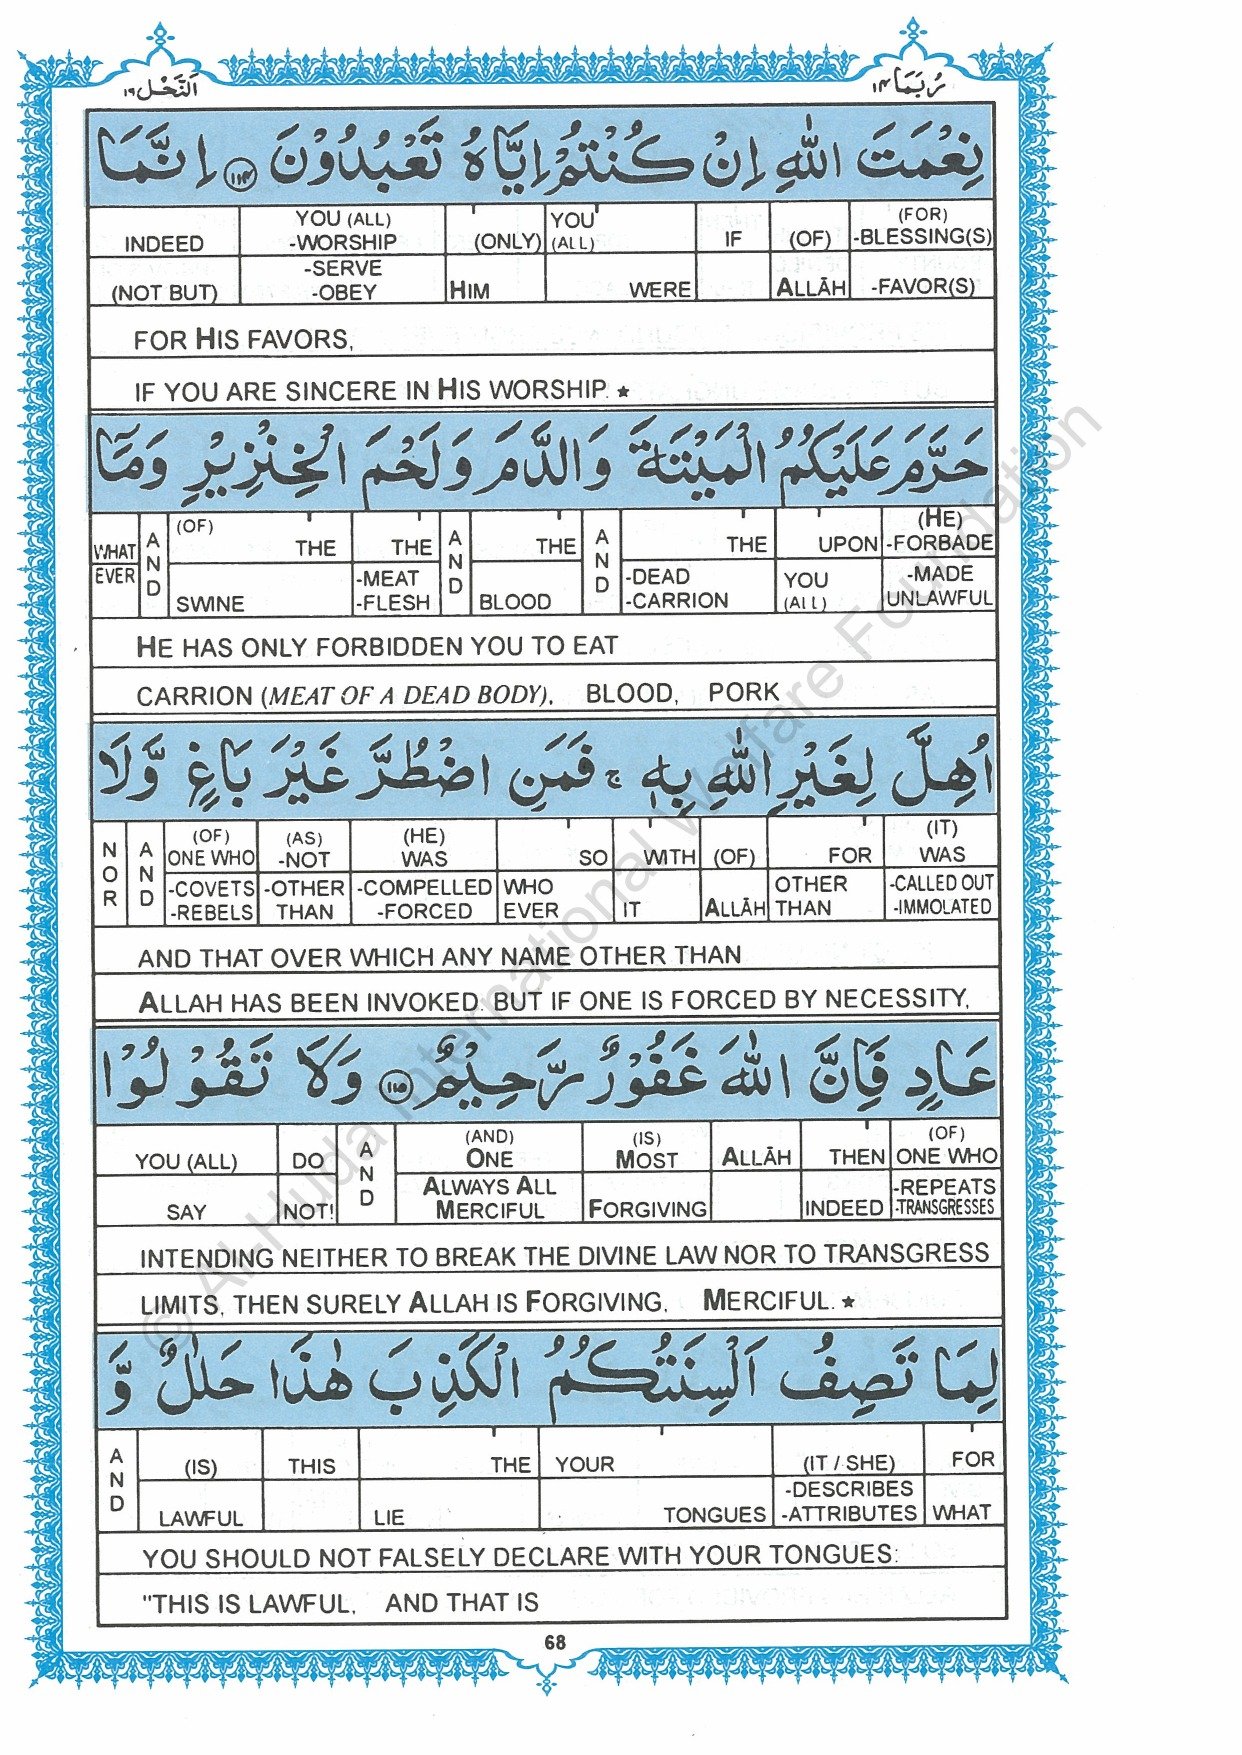 النَّحْل ١٦
رُبَمَا ١٤
نِعْمَتَ اللّٰهِ اِنْ كُنْتُمْ اِيَّاهُ تَعْبُدُوْنَ ﴿١١٤﴾ اِنَّمَا
INDEED YOU (ALL) -WORSHIP (ONLY) YOU (ALL) IF (OF) (FOR) -BLESSING(S)
(NOT BUT) -SERVE -OBEY HIM WERE ALLĀH -FAVOR(S)
FOR HIS FAVORS,
IF YOU ARE SINCERE IN HIS WORSHIP. ★
حَرَّمَ عَلَيْكُمُ الْمَيْتَةَ وَالدَّمَ وَلَحْمَ الْخِنْزِيْرِ وَمَآ
WHAT AND (OF) THE THE AND THE AND THE UPON (HE) -FORBADE
EVER SWINE -MEAT -FLESH BLOOD -DEAD -CARRION YOU (ALL) -MADE UNLAWFUL
HE HAS ONLY FORBIDDEN YOU TO EAT
CARRION (MEAT OF A DEAD BODY), BLOOD, PORK
اُهِلَّ لِغَيْرِ اللّٰهِ بِهٖ ۚ فَمَنِ اضْطُرَّ غَيْرَ بَاغٍ وَّلَا
NOR AND (OF) ONE WHO (AS) -NOT (HE) WAS SO WITH (OF) FOR (IT) WAS
-COVETS -REBELS -OTHER THAN -COMPELLED -FORCED WHO EVER IT ALLĀH OTHER THAN -CALLED OUT -IMMOLATED
AND THAT OVER WHICH ANY NAME OTHER THAN
ALLAH HAS BEEN INVOKED. BUT IF ONE IS FORCED BY NECESSITY,
عَادٍ فَاِنَّ اللّٰهَ غَفُوْرٌ رَّحِيْمٌ ﴿١١٥﴾ وَلَا تَقُوْلُوْا
YOU (ALL) DO AND (AND) ONE (IS) MOST ALLĀH THEN (OF) ONE WHO
SAY NOT! ALWAYS ALL MERCIFUL FORGIVING INDEED -REPEATS -TRANSGRESSES
INTENDING NEITHER TO BREAK THE DIVINE LAW NOR TO TRANSGRESS
LIMITS, THEN SURELY ALLAH IS FORGIVING, MERCIFUL. ★
لِمَا تَصِفُ اَلْسِنَتُكُمُ الْكَذِبَ هٰذَا حَلٰلٌ وَّ
AND (IS) THIS THE YOUR (IT / SHE) FOR
LAWFUL LIE TONGUES -DESCRIBES -ATTRIBUTES WHAT
YOU SHOULD NOT FALSELY DECLARE WITH YOUR TONGUES:
"THIS IS LAWFUL, AND THAT IS
68
© Al-Huda International Welfare Foundation